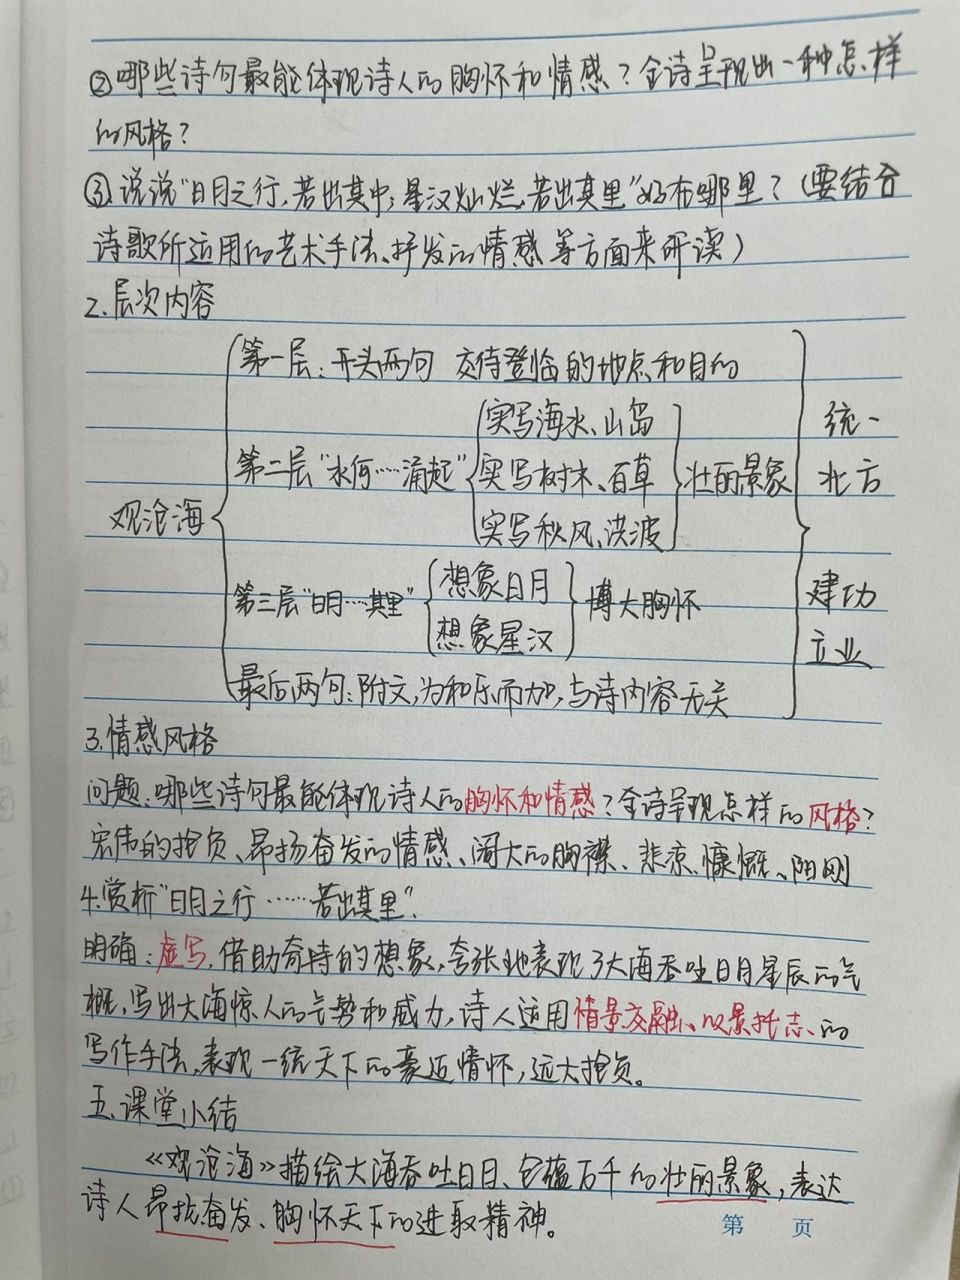 ②哪些诗句最能体现诗人的胸怀和情感?全诗呈现出一种怎样
的风格?
③说说"日月之行,若出其中;星汉灿烂,若出其里"好在哪里?(要结合
诗歌所运用的艺术手法、抒发的情感等方面来研读)
2.层次内容
第一层:开头两句 交待登临的地点和目的
实写海水、山岛
统一
第二层"水何……涌起"
实写树木、百草
壮丽景象
北方
观沧海
实写秋风、洪波
想象日月
第三层"日月……其里"
博大胸怀
建功
想象星汉
立业
最后两句:附文,为和乐而加,与诗内容无关
3.情感风格
问题:哪些诗句最能体现诗人的胸怀和情感?全诗呈现怎样的风格?
宏伟的抱负、昂扬奋发的情感、阔大的胸襟、悲凉、慷慨、阳刚
4.赏析"日月之行……若出其里".
明确:虚写,借助奇特的想象,夸张地表现了大海吞吐日月星辰的气
概,写出大海惊人的气势和威力,诗人运用情景交融、以景托志、的
写作手法,表现一统天下的豪迈情怀,远大抱负。
五、课堂小结
《观沧海》描绘大海吞吐日月、包蕴万千的壮丽景象,表达
诗人昂扬奋发、胸怀天下的进取精神。
第 页